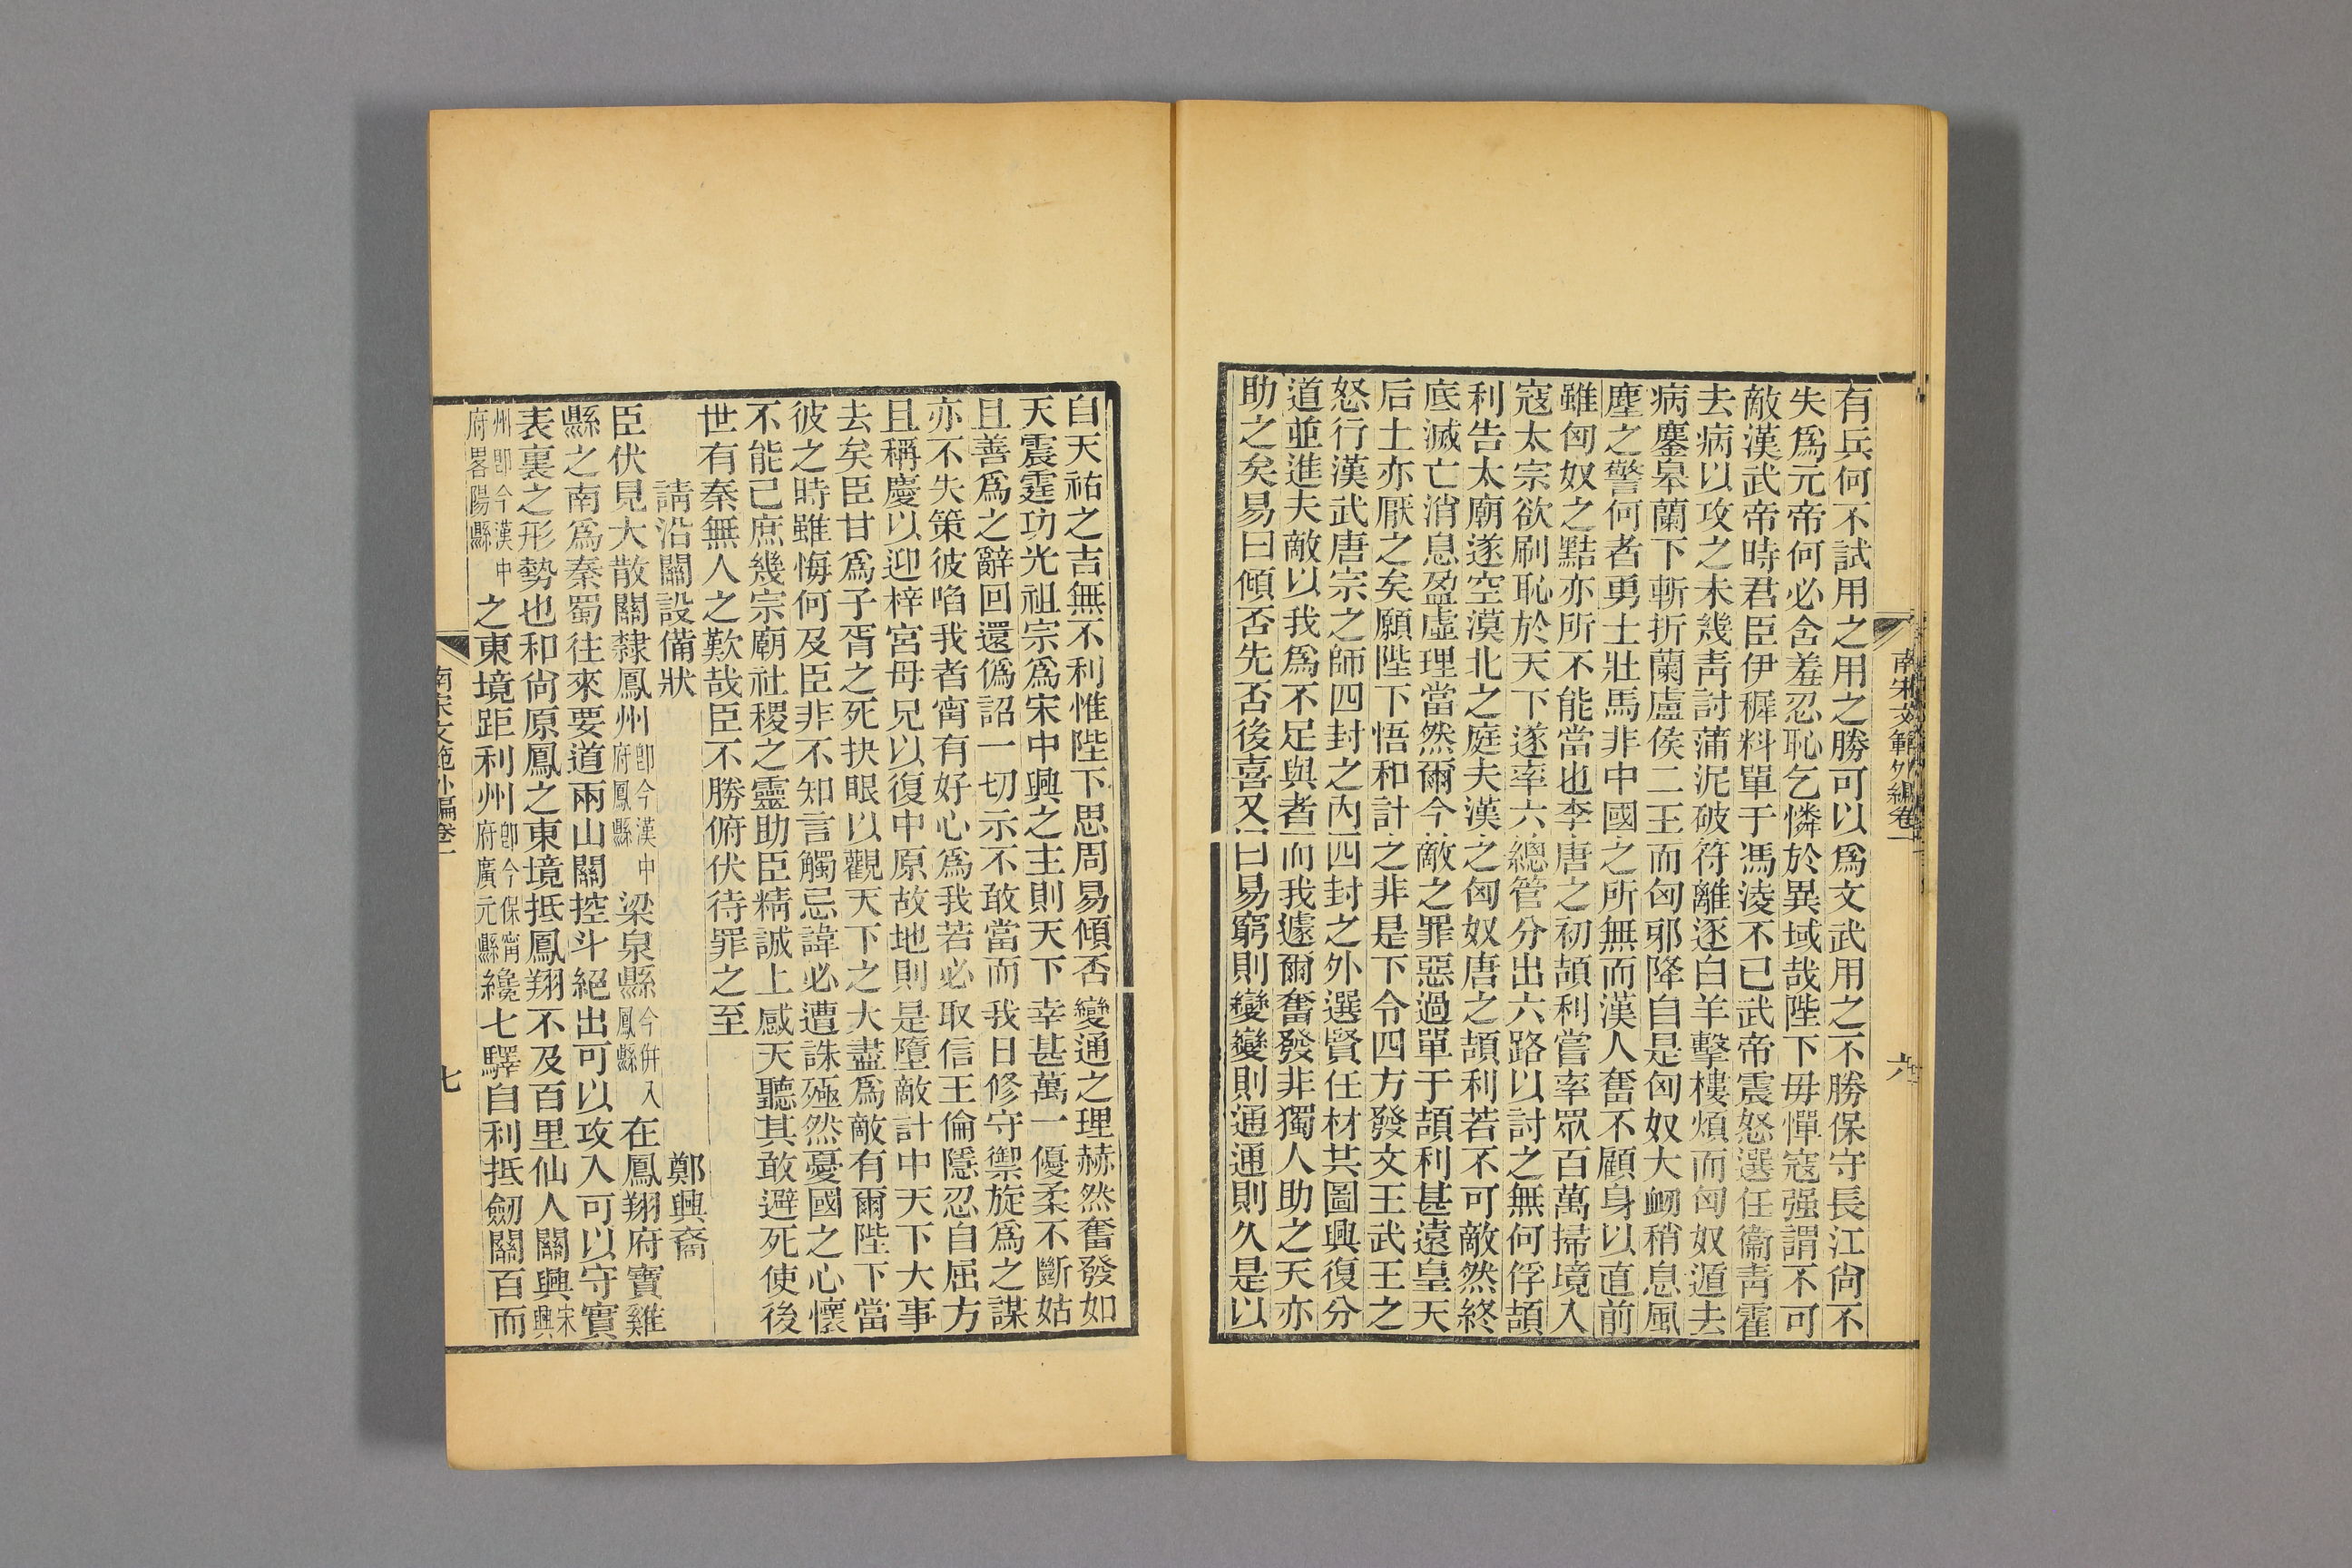 南宋文範外編卷一
六
有兵何不試用之用之勝可以爲文武用之不勝保守長江尙不
失爲元帝何必含羞忍恥乞憐於異域哉陛下毋憚寇强謂不可
敵漢武帝時君臣伊穉料單于馮淩不已武帝震怒選任衞靑霍
去病以攻之未幾靑討蒲泥破符離逐白羊擊樓煩而匈奴遁去
病鏖皋蘭下斬折蘭盧侯二王而匈邪降自是匈奴大衂稍息風
塵之警何者勇士壯馬非中國之所無而漢人奮不顧身以直前
雖匈奴之黠亦所不能當也李唐之初頡利嘗率眾百萬掃境入
寇太宗欲刷恥於天下遂率六總管分出六路以討之無何俘頡
利告太廟遂空漠北之庭夫漢之匈奴唐之頡利若不可敵然終
底滅亡消息盈虛理當然爾今敵之罪惡過單于頡利甚遠皇天
后土亦厭之矣願陛下悟和計之非是下令四方發文王武王之
怒行漢武唐宗之師四封之內四封之外選賢任材共圖興復分
道並進夫敵以我爲不足與者而我遽爾奮發非獨人助之天亦
助之矣易曰傾否先否後喜又曰易窮則變變則通通則久是以
自天祐之吉無不利惟陛下思周易傾否變通之理赫然奮發如
天震霆功光祖宗爲宋中興之主則天下幸甚萬一優柔不斷姑
且善爲之辭回還僞詔一切示不敢當而我日修守禦旋爲之謀
亦不失策彼啗我者甯有好心爲我若必取信王倫隱忍自屈方
且稱慶以迎梓宮母兄以復中原故地則是墮敵計中天下大事
去矣臣甘爲子胥之死抉眼以觀天下之大盡爲敵有爾陛下當
彼之時雖悔何及臣非不知言觸忌諱必遭誅殛然憂國之心懷
不能已庶幾宗廟社稷之靈助臣精誠上感天聽其敢避死使後
世有秦無人之歎哉臣不勝俯伏待罪之至
請沿關設備狀
鄭興裔
臣伏見大散關隸鳳州卽今漢中府鳳縣梁泉縣今併入鳳縣在鳳翔府寶雞
縣之南爲秦蜀往來要道兩山關控斗絕出可以攻入可以守實
表裏之形勢也和尙原鳳之東境抵鳳翔不及百里仙人關興宋興
州卽今漢中府畧陽縣之東境距利州卽今保甯府廣元縣纔七驛自利抵劒關百而
南宋文範外編卷一
七